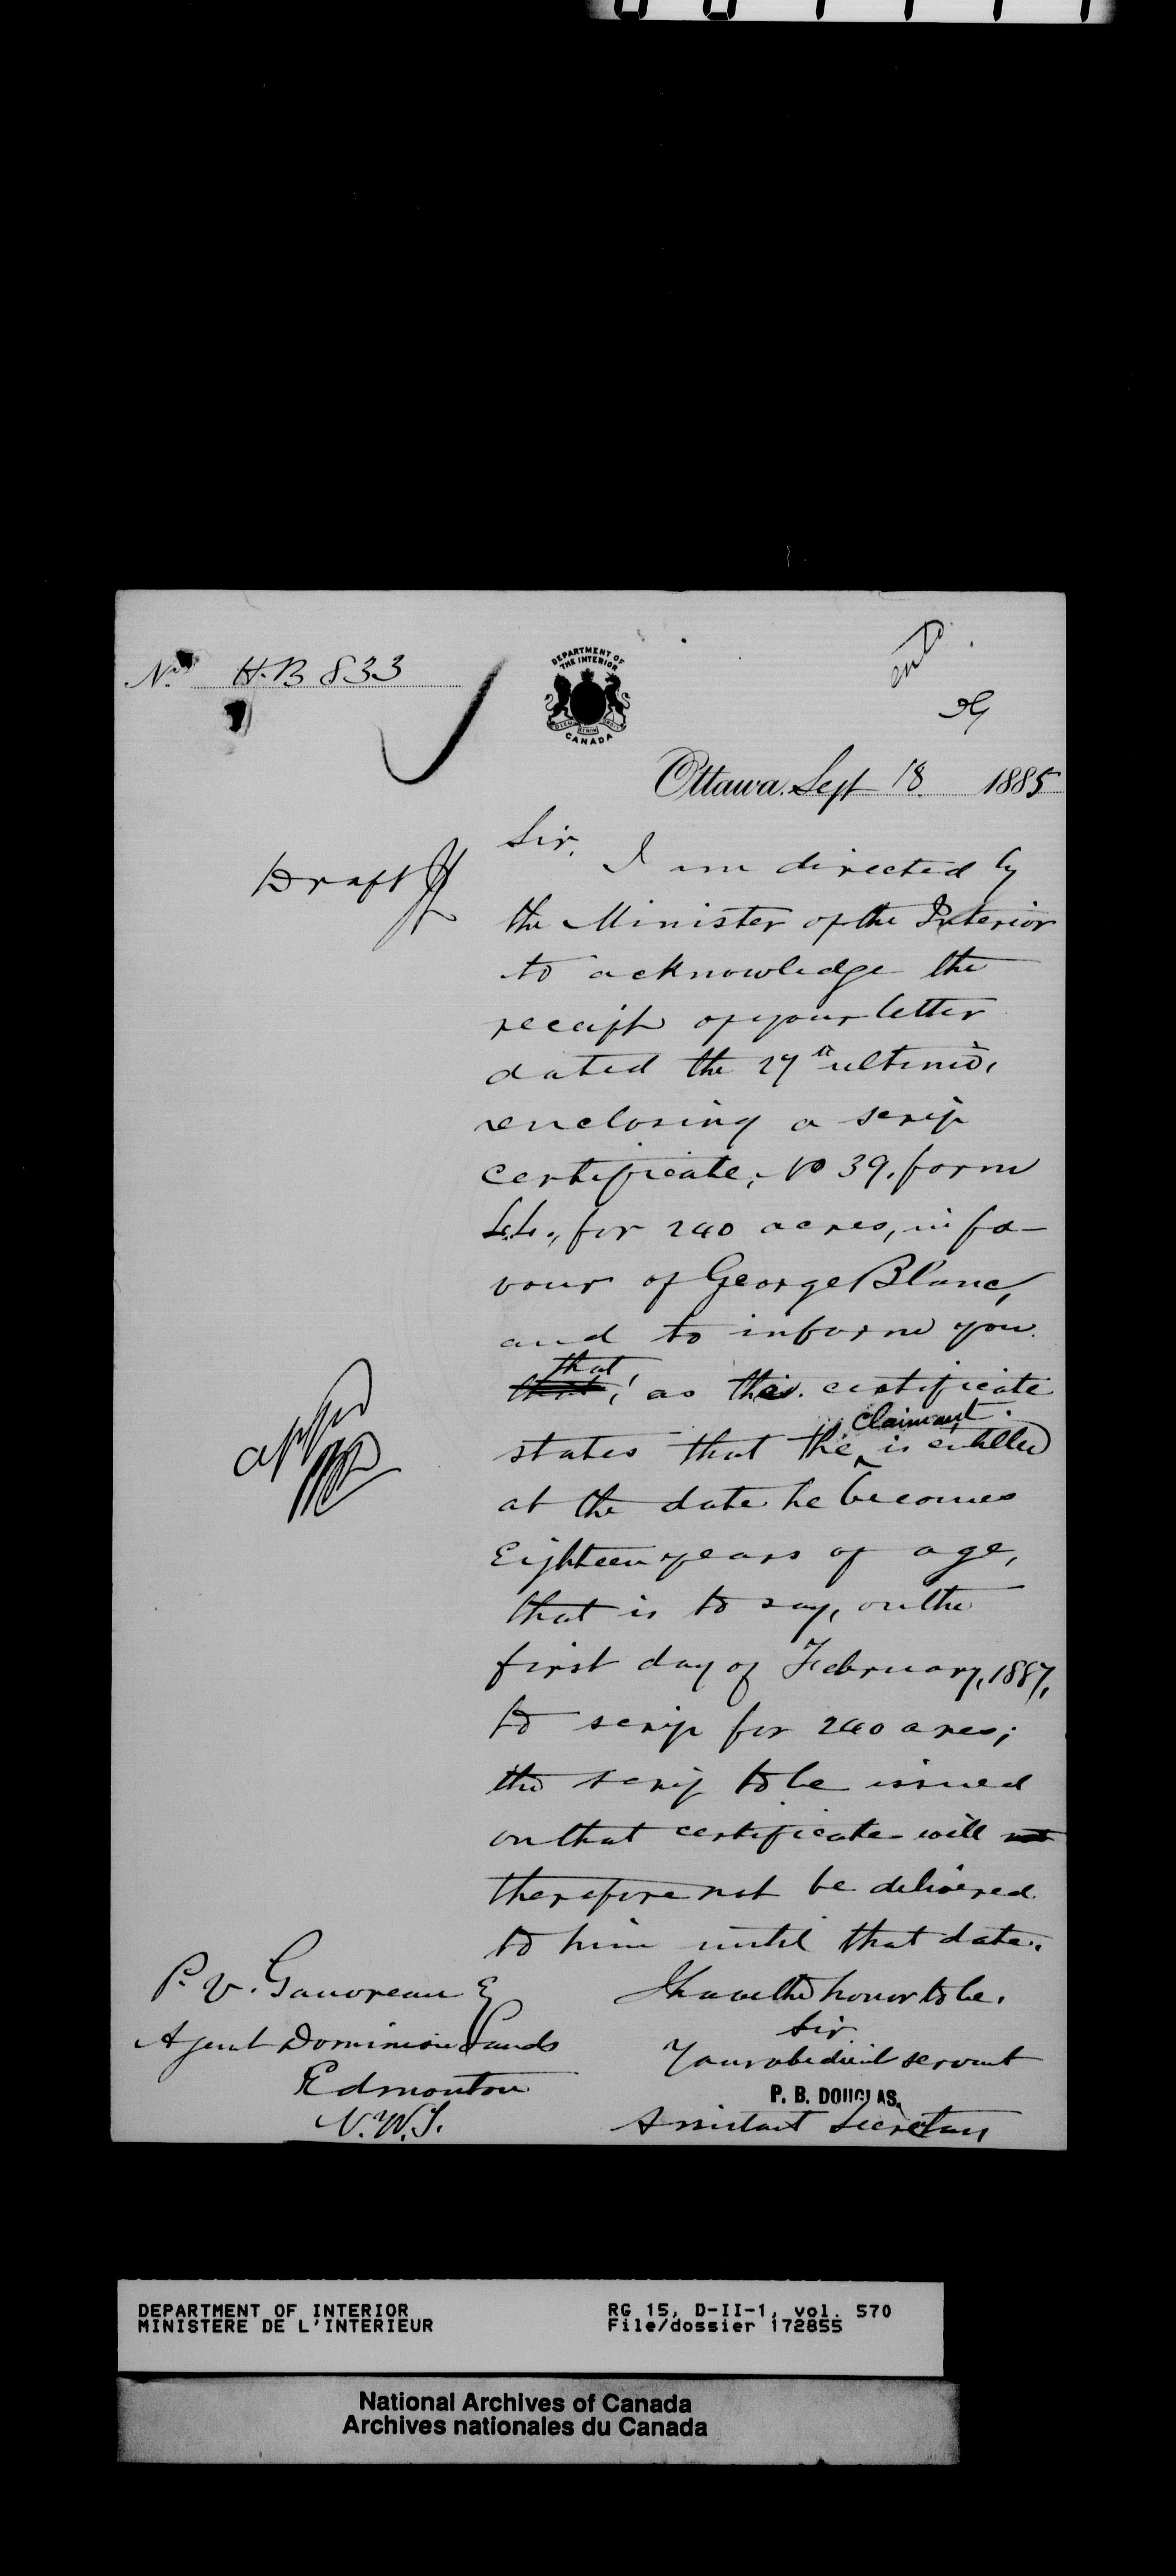 No. H.B 833
DEPARTMENT OF
THE INTERIOR
CANADA
Ottawa, Sept 18 1885
Draft
Sir,
I am directed by
the Minister of the Interior
to acknowledge the
receipt of your letter
dated the 27th ultimo,
enclosing a scrip
certificate, No 39, form
for 240 acres, in fa-
vour of George Blanc,
and to inform you
that, as the certificate
states that the claimant is entitled
at the date he becomes
Eighteen years of age,
that is to say, on the
first day of February, 1887,
to scrip for 240 acres;
the scrip to be issued
on that certificate will not
therefore not be delivered
to him until that date.
I have the honor to be,
Sir
Your obedient servant
P. B. DOUGLAS,
Assistant Secretary
P. V. Gauvreau E
Agent Dominion Lands
Edmonton
N.W.T.
DEPARTMENT OF INTERIOR
MINISTERE DE L'INTERIEUR
RG 15, D-II-1, vol. 570
File/dossier 172855
National Archives of Canada
Archives nationales du Canada